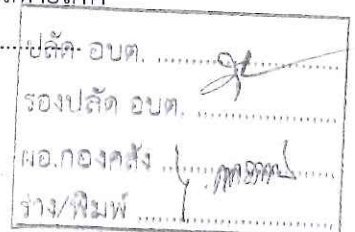 ปลัด อบต. ....................
รองปลัด อบต. ....................
ผอ.กองคลัง ....................
ร่าง/พิมพ์ ....................